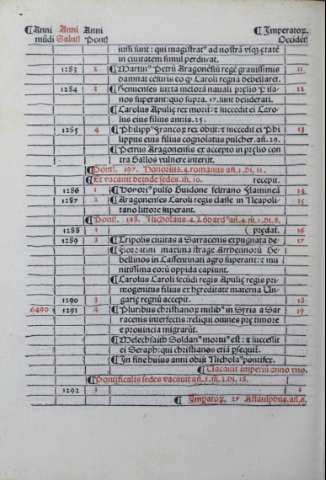 ¶Anni mūdi Anni Salutis Anni Pont. ¶Imperatoꝝ Occidēt.
iussi sunt: qui magistratꝰ ad nostrā vsqꝫ etatē
in ciuitatem simul perdurat.
1283 2 ¶Martinꝰ Petrū Aragonēsiū regē grauissimis 11
damnat cēsuris eo qꝫ Caroli regna debellaret.
1284 3 ¶Genuenses iuxta meloria nauali prelio Pisa 12
nos superant: quo supra. 17. sunt desiderati.
¶Carolus Apulie rex morit: et successit ei Caro
lus eius filius annis. 25.
1285 4 ¶Philippꝰ Francoꝝ rex obijt: et successit ei Phi 13
lippus eius filius cognolatus pulcher. añ. 29.
¶Petrus Aragonensis ex accepto in prelio con
tra Gallos vulnere interijt.
¶Pont. 197. Honorius. 4. romanus añ. 2. di. 11.
¶Et vacauit deinde sedes. m̄. 10. recepit.
1286 1 ¶Honorꝰ pulso Guidone feltrano Flamineā 14
1287 2 ¶Aragonenses Caroli regis classe in Neapoli 15
tano littore superant.
¶Pont. 198. Nicholaus. 4. Lōbard
1288 1 (predat. 16
1289 2 ¶Tripolis ciuitas a Sarracenis expugnata de 17
¶Florentini maxima strage Arrhetinorū Gi
bellinos in Cassentinati agro superant: et mu
nitissima eorū oppida capiunt.
¶Carolus Caroli secūdi regis Apulie regis pri
mogenitus filius ex hereditate materna Un
1290 3 garie regnū accepit. 18
6490 1291 4 ¶Pluribus christianoꝝ milibꝰ in Syria a Sar 19
racenis interfectis: reliqui omnes pre timore
e prouincia migrarūt.
¶Melechsaith Soldanꝰ moritur: et successit
ei Seraph: qui christianos etiā psequit.
¶In fine huius anni obijt Nicholaꝰ pontifex.
¶Uacauit imperiū anno vno.
¶Pontificalis sedes vacauit añ. 2. m̄. 3. di. 18.
1292 1 1
¶Imperatoꝝ Astaulphus. añ. 6.